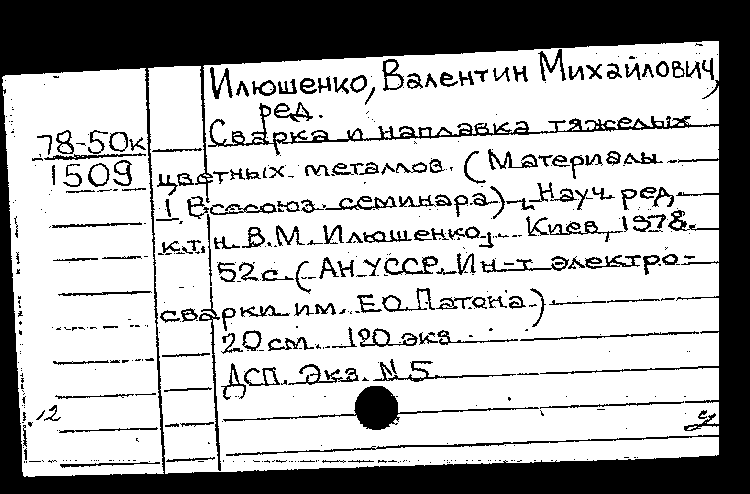 Илюшенко, Валентин Михайлович,
ред.
78-50к Сварка и наплавка тяжелых
1509 цветных металлов. (Материалы
I Всесоюз. семинара). Науч. ред.
к.т.н. В.М. Илюшенко, Киев, 1978.
52 с. (АН УССР. Ин-т электро-
сварки им. Е.О. Патона).
20 см. 120 экз.
ДСП. Экз. N 5.
12